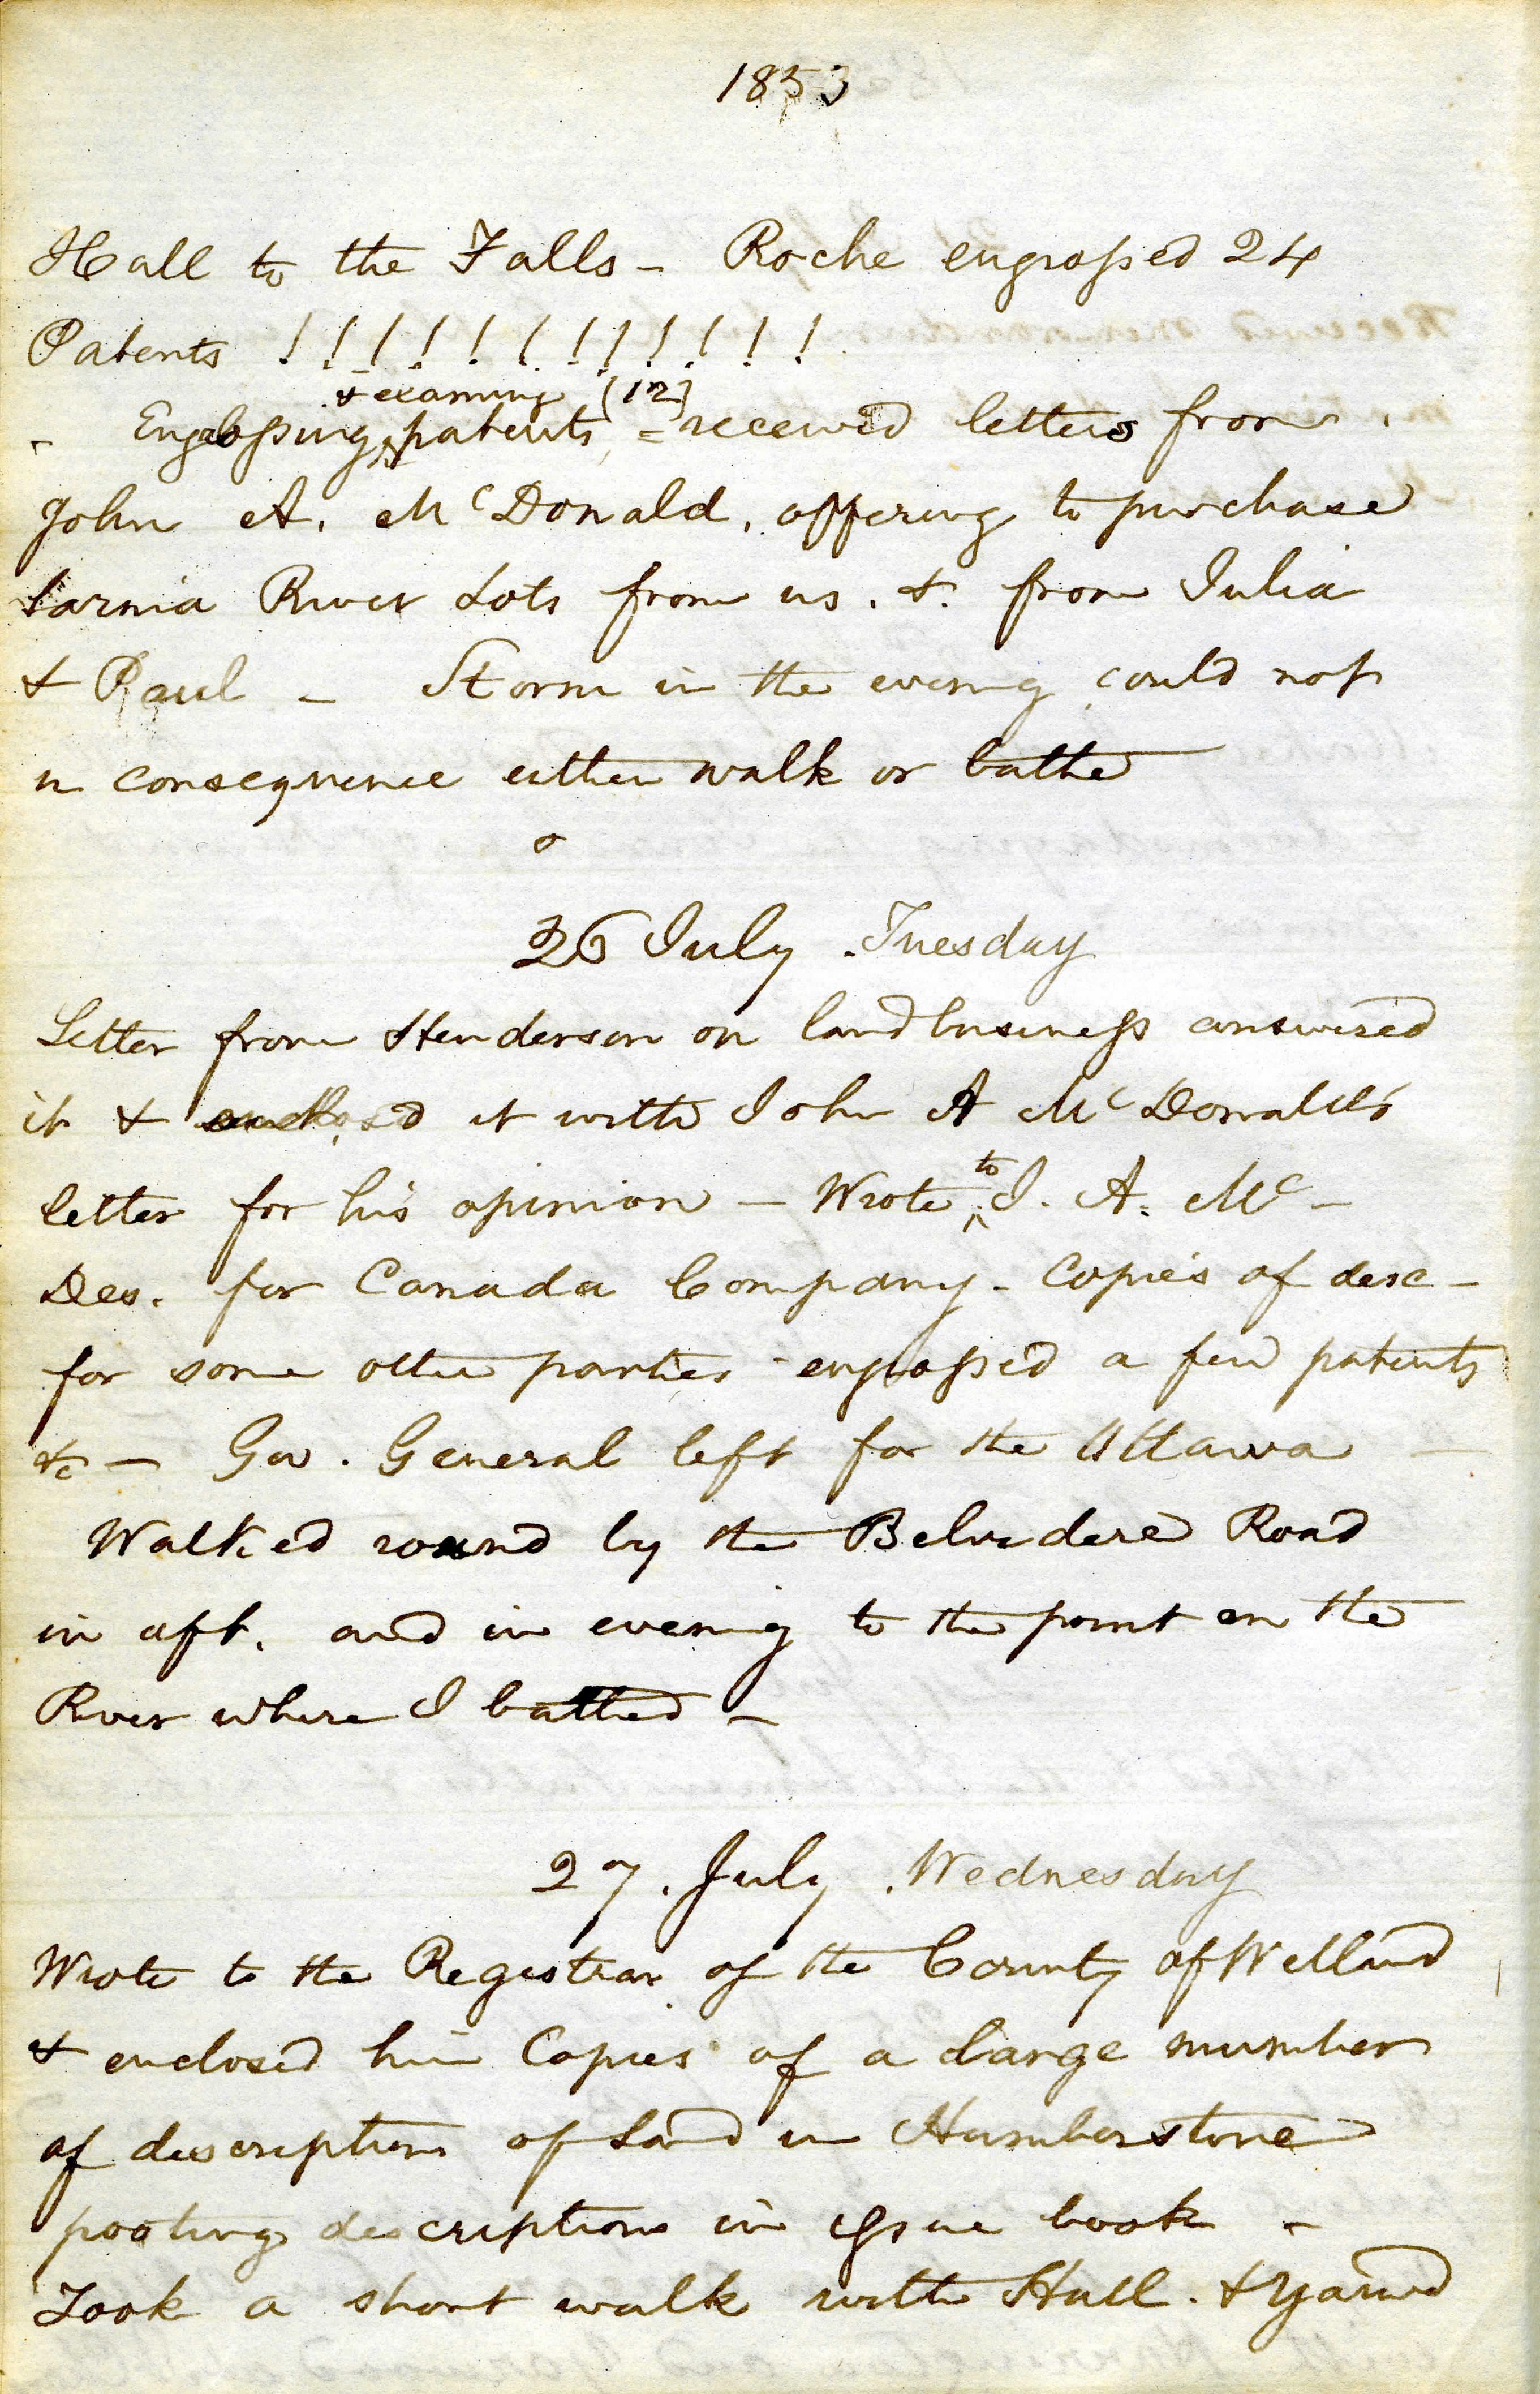 1853
Hall to the Falls - Roche engrossed 24
Patents ! ! ! ! ! ! ! ! ! ! ! !
& examing (12)
- Engrossing patents, = received letters from
John A. McDonald, offering to purchase
Sarnia River Lots from us. &. from Julia
& Paul - Storm in the evening could not
in consequence either walk or bathe
26 July. Tuesday
Letter from Henderson on land business answered
it & enclosed it with John A McDonald's
letter for his opinion - Wrote to J. A. Mc -
Des. for Canada Company - Copies of desc -
for some other parties - engrossed a few patents
&c - Gov. General left for the Ottawa -
Walked round by the Belvedere Road
in aft. and in evening to the point on the
River where I bathed -
27. July. Wednesday
Wrote to the Registrar of the County of Welland
& enclosed him Copies of a large number
of descriptions of Land in Humberstone
posting descriptions in issue book -
Took a short walk with Hall. &